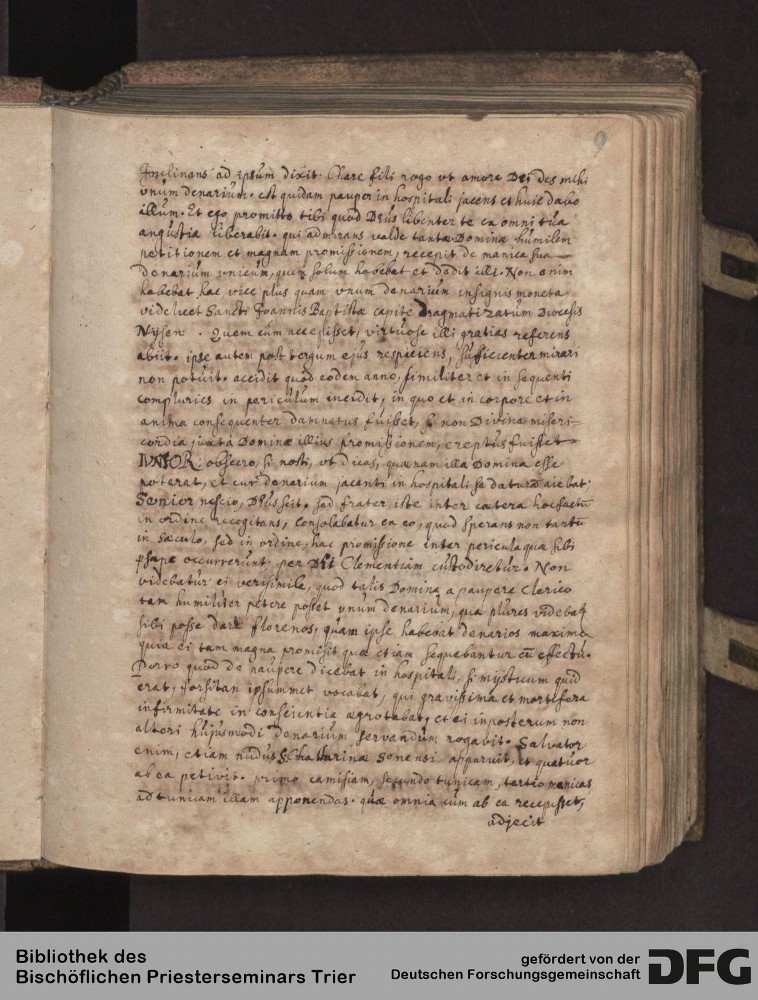 9
Inclinans ad ipsum dixit. Chare fili rogo ut amore Dei des mihi
unum denarium. est quidam pauper in hospitali jacens et huic dabo
illum. Et ego promitto tibi quod Deus libenter te ex omni tua
angustia liberabit. qui admirans valde tantæ Dominæ humilem
petitionem et magnam promissionem, recepit de manica sua
denarium unicum, quem solum habebat et dedit illi. Non enim
habebat hac vice plus quam unum denarium insignis moneta
videlicet Sancti Joannis Baptistæ capite Dragmatizatum Diocesis
Nysen. Quem cum accepisset, virtuose illi gratias referens
abiit. ipse autem post tergum ejus respiciens, sufficienter mirari
non potuit. accidit quod eodem anno, similiter et in sequenti
compluries in periculum incidit, in quo et in corpore et in
anima consequenter damnatus fuisset, si non Divina miseri-
cordia juxta Dominæ illius promissionem, ereptus fuisset
IUNIOR. obsecro, si nosti, ut dicas, quænam illa Domina esse
poterat, et cur denarium jacenti in hospitali se daturā aiebat.
Senior nescio, Deus scit. sed frater iste inter cætera hoc factū
in ordine recogitans, consolabatur ex eo, quod sperans non tantū
in sæculo, sed in ordine, hac promissione inter pericula quæ sibi
sæpe occurrerunt, per Dei Clementiam custodiretur. Non
videbatur ei verisimile, quod talis Domina a paupere Clerico
tam humiliter petere posset unum denarium, quæ plures videbat
sibi posse dare florenos, quam ipse habebat denarios maxime
quia ei tam magna promisit quæ etiam sequebantur cū effectu.
Porro quod de paupere dicebat in hospitali, si mysticum quid
erat, forsitan ipsummet vocabat, qui gravissima et mortifera
infirmitate in conscientia ægrotabat, et ei in posterum non
alteri hujusmodi denarium servandum rogavit. Salvator
enim, etiam nudus S. Chatharinæ Senensi apparuit, et quatuor
ab ea petivit. primo camisiam, secundo tunicam, tertio manicas
ad tunicam illam apponendas. quæ omnia cum ab ea recepisset,
adjecit
Bibliothek des
Bischöflichen Priesterseminars Trier
gefördert von der
Deutschen Forschungsgemeinschaft
DFG